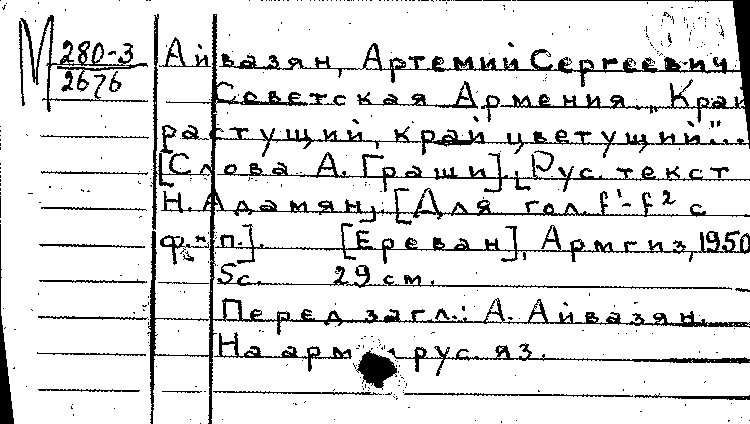 М 280-3
2676
Айвазян, Артемий Сергеевич
Советская Армения. „Край
растущий, край цветущий"...
[Слова А. Граши]. [Рус. текст
Н. Адамян]. [Для гол. f¹-f² с
ф.-п.]. [Ереван], Армгиз, 1950
5с. 29 см.
Перед загл.: А. Айвазян.
На арм рус. яз.